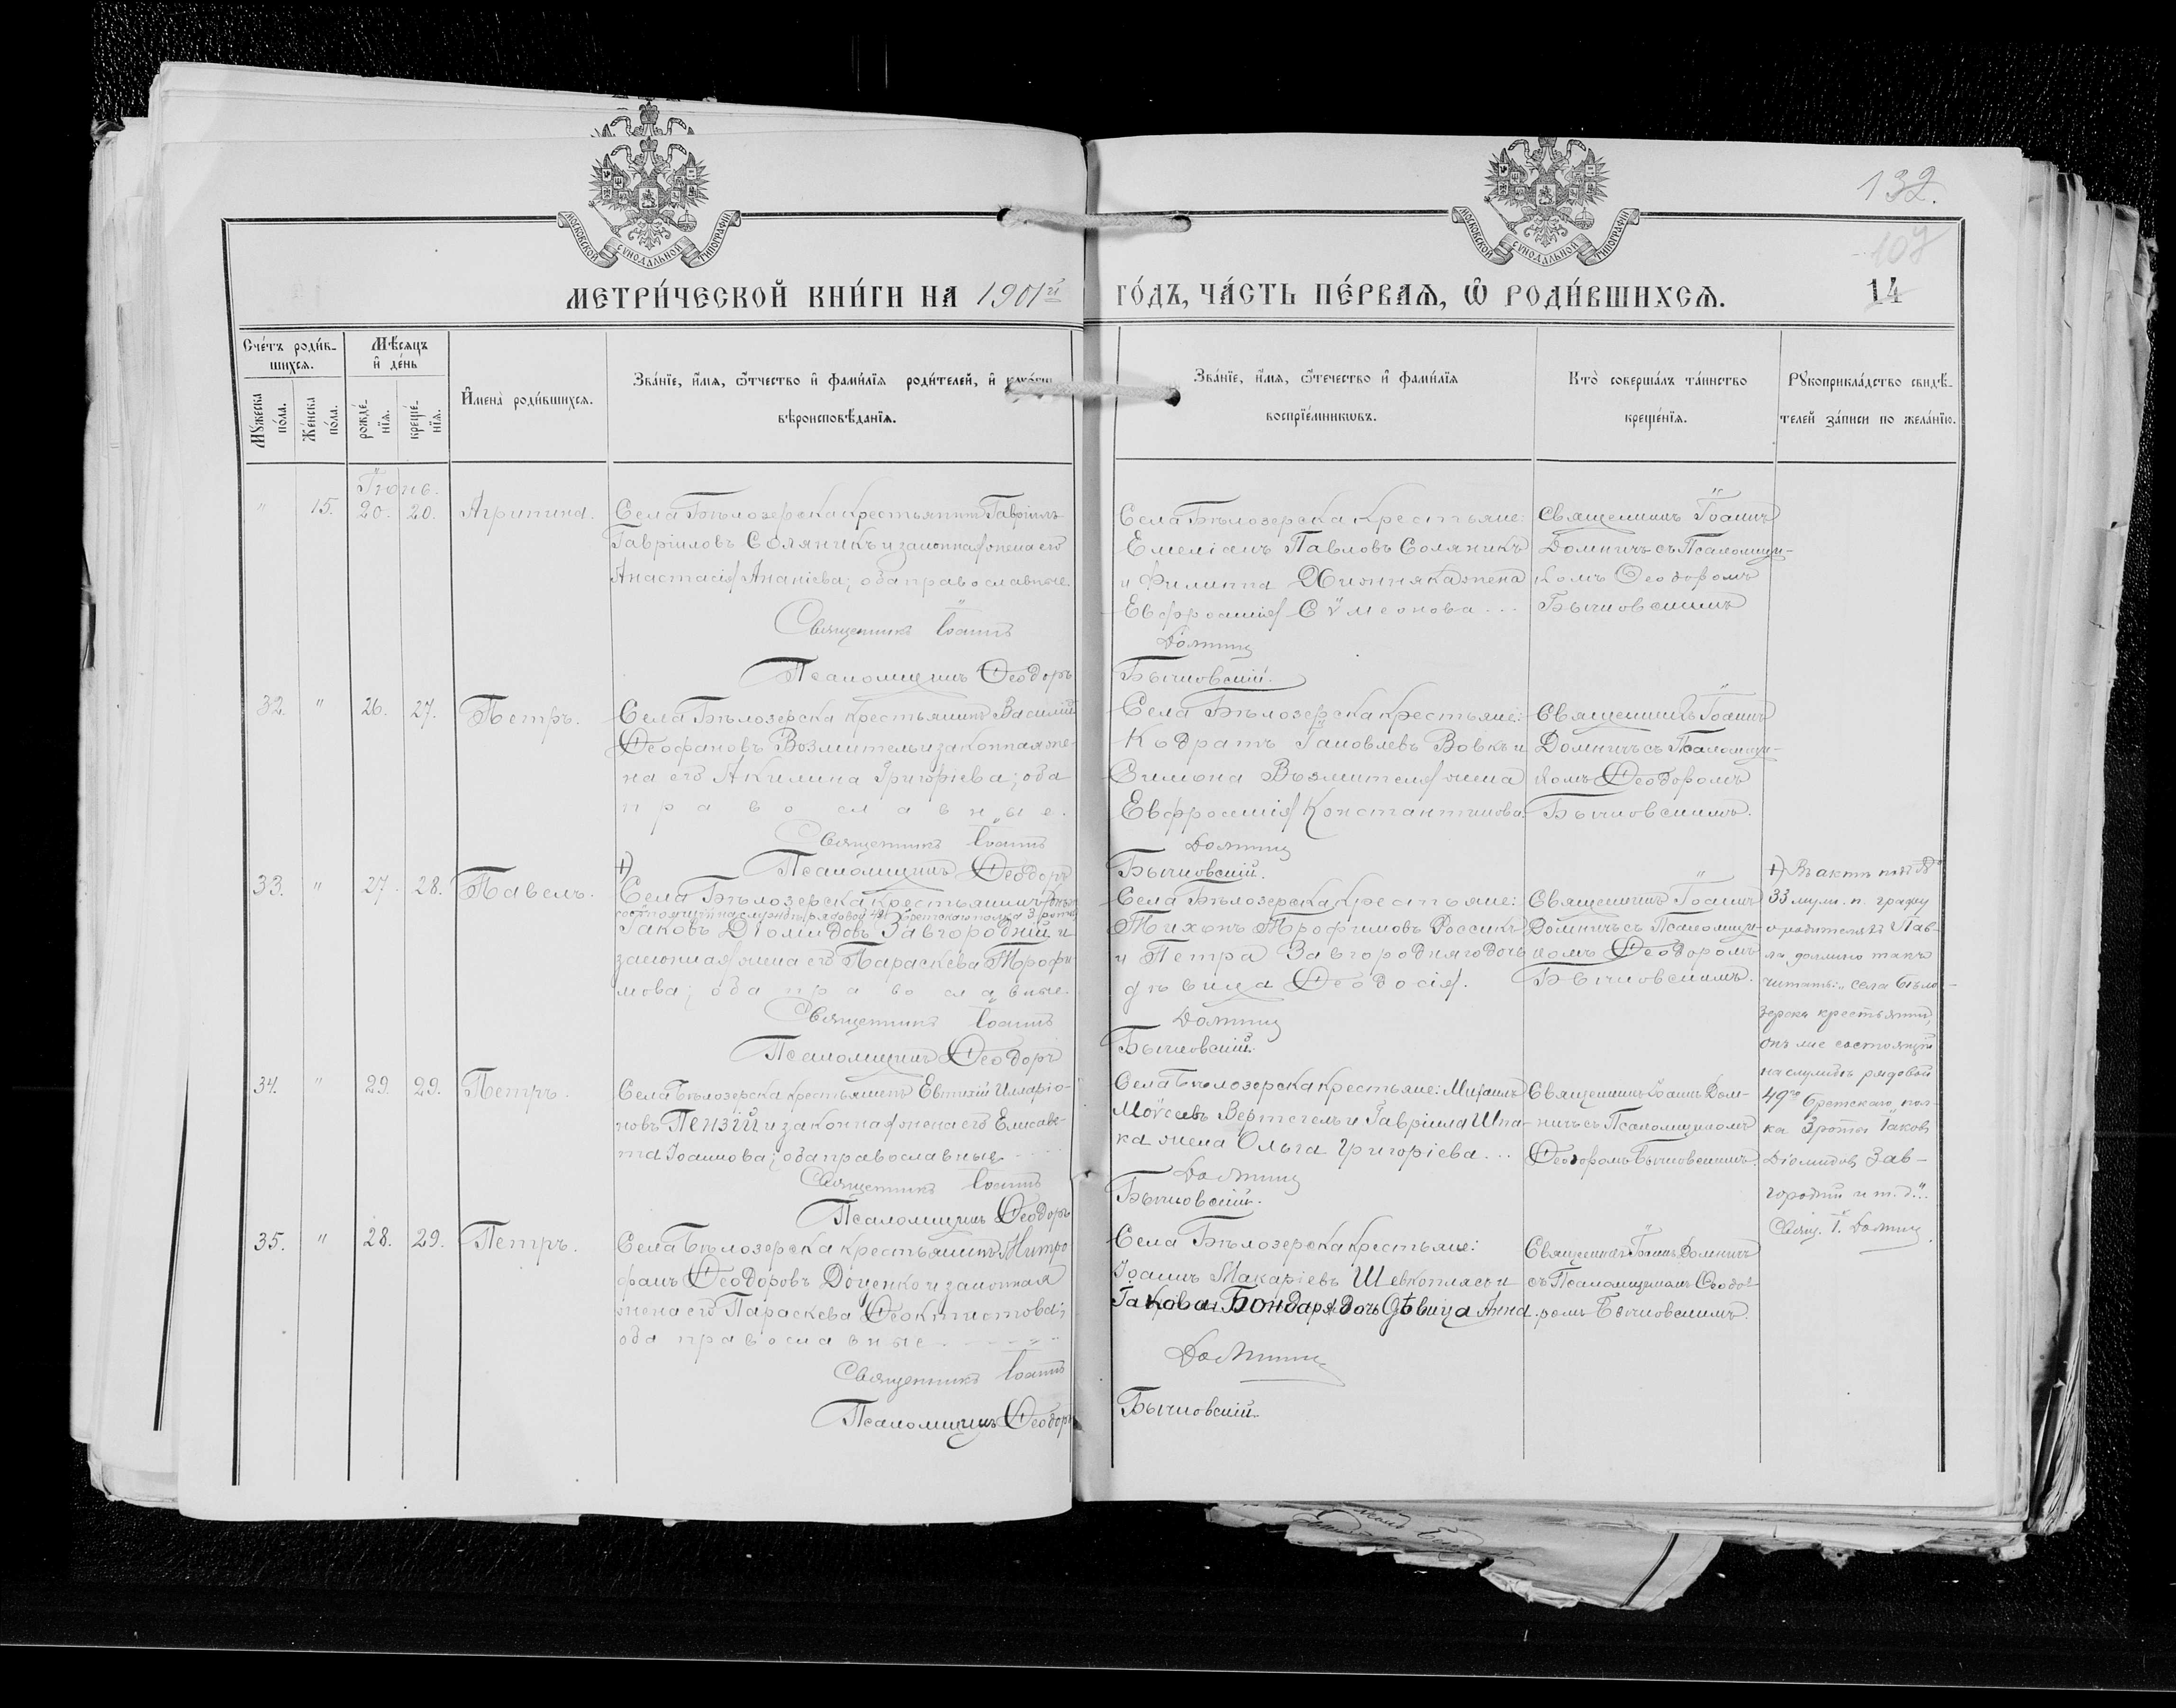 132.
МОСКОВСКОЙ СѴНОДАЛЬНОЙ ТИПОГРАФІИ
МОСКОВСКОЙ СѴНОДАЛЬНОЙ ТИПОГРАФІИ
МЕТРИ́ЧЕСКОЙ КНИ́ГИ НА 1901й
ГО́ДЪ, ЧА́СТЬ ПЕ́РВАѦ, Ѿ РОДИ́ВШИХСѦ.
14
Сче́тъ роди́в-
шихсѧ.
Мѣ́сяцъ
и҆ де́нь
Мꙋ́жеска
по́ла.
Же́нска
по́ла.
рожде́-
нїѧ.
креще́-
нїѧ.
И҆мена̀ роди́вшихсѧ.
Зва́нїе, и҆́мѧ, ѻ҆́тчество и҆ фами́лїѧ роди́телей, и҆
вѣроисповѣ́данїѧ.
Зва́нїе, и҆́мѧ, ѻ҆́течество и҆ фами́лїѧ
воспрїе́мникѡвъ.
Кто̀ соверша́лъ та́инство
креще́нїѧ.
Рꙋкоприкла́дство свидѣ́-
телей за́писи по жела́нїю.
Іюнь.
" 15. 20. 20. Агрипина.
Села Бѣлозерска крестьянинъ Гавріилъ
Гавріиловъ Соляникъ и законная жена его
Анастасія Ананіева; оба православные.
Священникъ Іоаннъ
Псаломщикъ Ѳеодоръ
Села Бѣлозерска крестьяне:
Емеліанъ Павловъ Соляникъ
и Филиппа Хижняка жена
Евфросинія Сѵмеонова...
Домнич
Бычковскій.
Священникъ Іоаннъ
Домничъ съ Псаломщи-
комъ Ѳеодоромъ
Бычковскимъ
32. " 26. 27. Петръ.
Села Бѣлозерска крестьянинъ Василій
Ѳеофановъ Возмитель и законная же-
на его Акилина Григоріева; оба
православные.
Священникъ Іоаннъ
Псаломщикъ Ѳеодоръ
Села Бѣлозерска крестьяне:
Кодратъ Іаковлевъ Вовкъ и
Симона Възмителя жена
Евфросинія Константинова.
Домнич
Бычковскій.
Священникъ Іоаннъ
Домничъ съ Псаломщи-
комъ Ѳеодоромъ
Бычковскимъ.
33. " 27. 28. Павелъ.
1)
Села Бѣлозерска крестьянинъ
состоящій на службѣ рядовой 49 Брестскаго полка 3 роты
Іаковъ Діомидовъ Завгородній и
законная жена его Параскева Трофи-
мова; оба православные.
Священникъ Іоаннъ
Псаломщикъ Ѳеодоръ
Села Бѣлозерска крестьяне:
Тихонъ Трофимовъ Россикъ
и Петра Завгородняго дочь
дѣвица Ѳеодосія.
Домнич
Бычковскій.
Священникъ Іоаннъ
Домничъ съ Псаломщи-
комъ Ѳеодоромъ
Бычковскимъ.
1) Въ актѣ подъ №
33 муж. п. графу
о родителяхъ Пав-
ла должно такъ
читать: "села Бѣло-
зерска крестьянинъ,
онъ же состоящій
на службѣ рядовой
49го Брестскаго пол-
ка 3 роты Іаковъ
Діомидовъ Зав-
городній и т. д."
Свящ. І. Домнич
34. " 29. 29. Петръ.
Села Бѣлозерска крестьянинъ Евтихій Иларіо-
новъ Пензій и законная жена его Елисаве-
та Іоаннова; оба православные
Священникъ Іоаннъ
Псаломщикъ Ѳеодоръ
Села Бѣлозерска крестьяне: Михаилъ
Моѵсеевъ Вертегелъ и Гавріила Шпа-
ка жена Ольга Григоріева...
Домнич
Бычковскій.
Священникъ Іоаннъ Дом-
ничъ съ Псаломщикомъ
Ѳеодоромъ Бычковскимъ.
35. " 28. 29. Петръ.
Села Бѣлозерска крестьянинъ Митро-
фанъ Ѳеодоровъ Доценко и законная
жена его Параскева Ѳеоктистова;
оба православные
Священникъ Іоаннъ
Псаломщикъ Ѳеодоръ
Села Бѣлозерска крестьяне:
Іоаннъ Макаріевъ Шевкоплясъ и
Іакова Бондаря дочь дѣвица Анна.
Домнич
Бычковскій
Священникъ Іоаннъ Домничъ
съ Псаломщикомъ Ѳеодо-
ромъ Бычковскимъ.